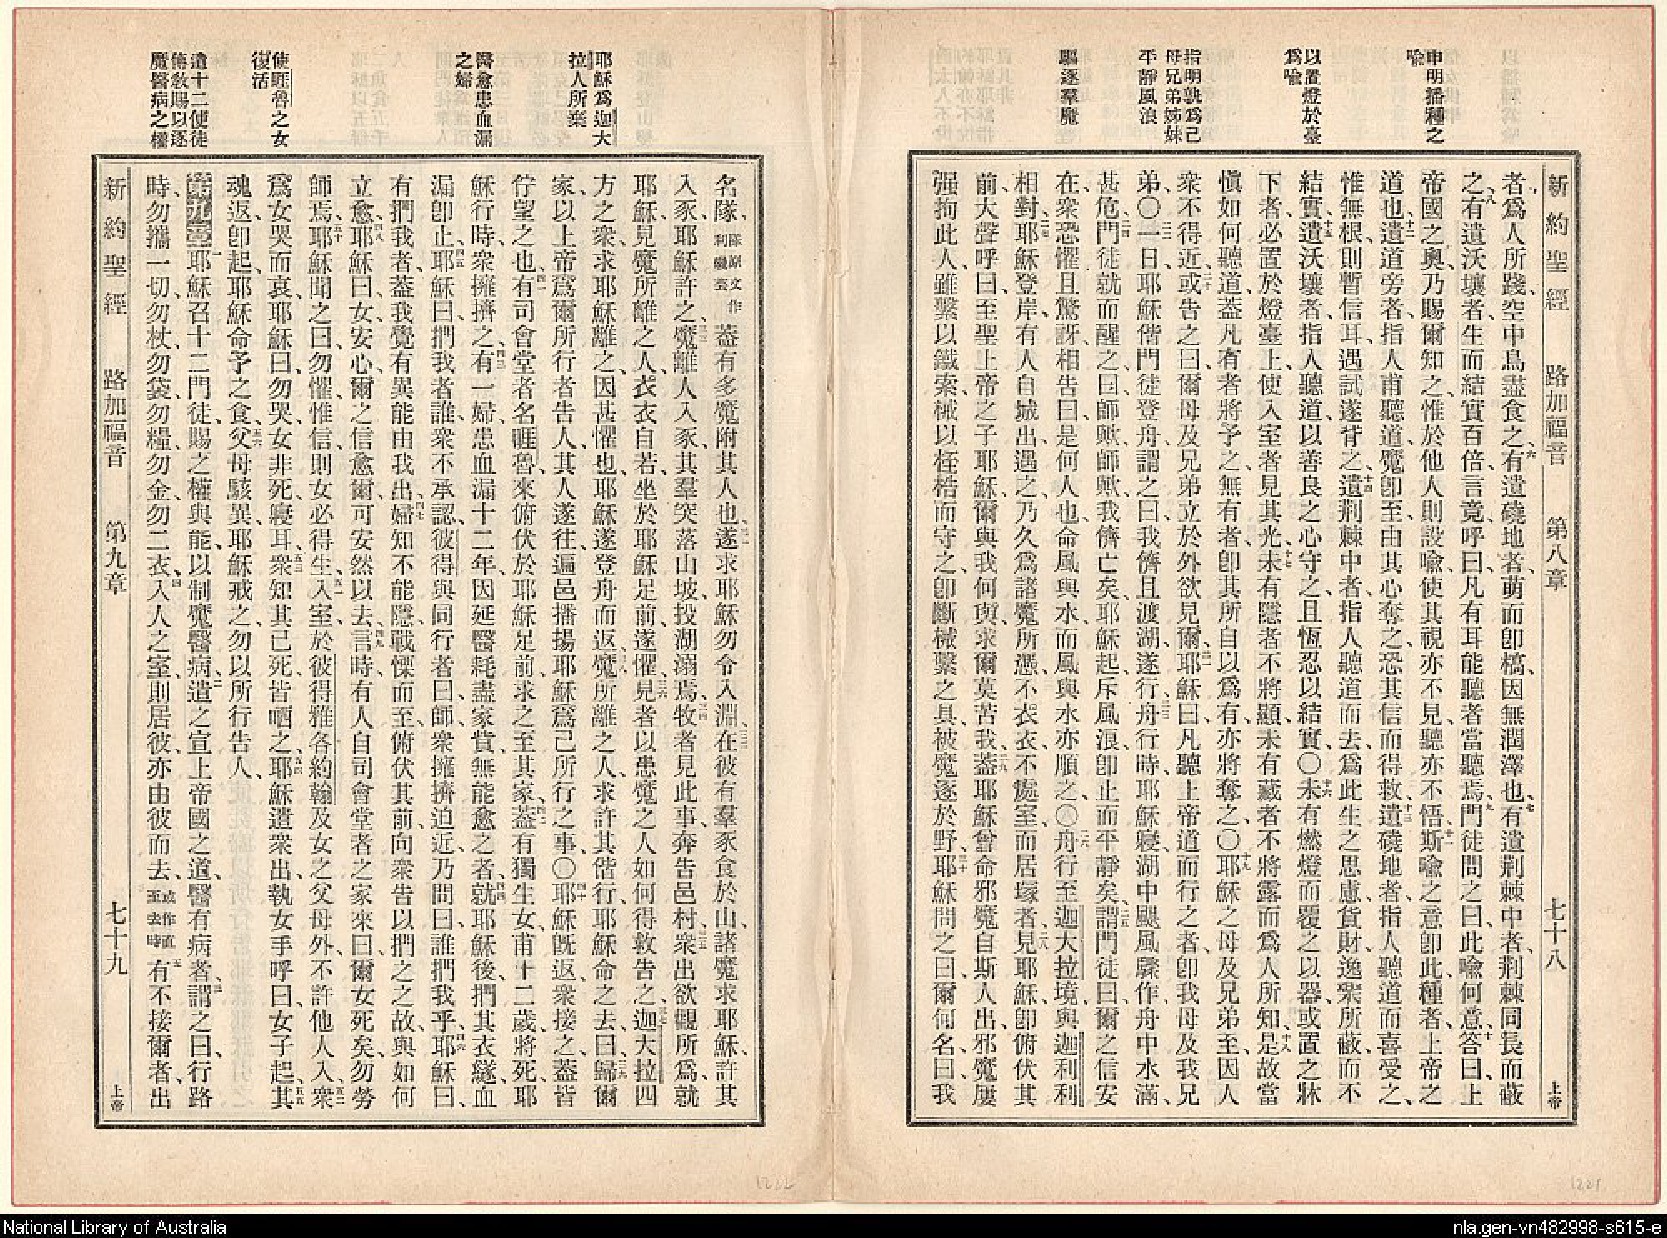 新約聖經 路加福音 第八章 七十八 上帝
申明播種之
喻
以置燈於臺
爲喻
指明孰爲己
母兄弟姊妹
平靜風浪
驅逐羣魔
者爲人所踐空中鳥盡食之有遺磽地者萌而卽槁因無潤澤也有遺荆棘中者荆棘同長而蔽
之有遺沃壤者生而結實百倍言竟呼曰凡有耳能聽者當聽焉門徒問之曰此喩何意答曰上
帝國之奧乃賜爾知之惟於他人則設喩使其視亦不見聽亦不悟斯喩之意卽此種者上帝之
道也遺道旁者指人甫聽道魔卽至由其心奪之恐其信而得救遺磽地者指人聽道而喜受之
惟無根則暫信耳遇試遂背之遺荆棘中者指人聽道而去爲此生之思慮貨財逸樂所蔽而不
結實遺沃壤者指人聽道以善良之心守之且恆忍以結實〇未有燃燈而覆之以器或置之牀
下者必置於燈臺上使入室者見其光未有隱者不將顯未有藏者不將露而爲人所知是故當
愼如何聽道蓋凡有者將予之無有者卽其所自以爲有亦將奪之〇耶穌之母及兄弟至因人
衆不得近或告之曰爾母及兄弟立於外欲見爾耶穌曰凡聽上帝道而行之者卽我母及我兄
弟〇一日耶穌偕門徒登舟謂之曰我儕且渡湖遂行舟行時耶穌寢湖中颶風驟作舟中水滿
甚危門徒就而醒之曰師歟師歟我儕亡矣耶穌起斥風浪卽止而平靜矣謂門徒曰爾之信安
在衆恐懼且驚訝相告曰是何人也命風與水而風與水亦順之〇舟行至迦大拉境與迦利利
相對耶穌登岸有人自城出遇之乃久爲諸魔所憑不衣衣不處室而居塚者見耶穌卽俯伏其
前大聲呼曰至聖上帝之子耶穌爾與我何與求爾莫苦我蓋耶穌曾命邪魔自斯人出邪魔屢
强拘此人雖繫以鐵索械以桎梏而守之卽斷械繫之具被魔逐於野耶穌問之曰爾何名曰我
耶穌爲迦大
拉人所棄
醫愈患血漏
之婦
使睚魯之女
復活
遣十二使徒
傳敎賜以逐
魔醫病之權
名隊隊原文作利磯雲蓋有多魔附其人也遂求耶穌勿令入淵在彼有羣豕食於山諸魔求耶穌許其
入豕耶穌許之魔離人入豕其羣突落山坡投湖溺焉牧者見此事奔告邑村衆出欲觀所爲就
耶穌見魔所離之人衣衣自若坐於耶穌足前遂懼見者以患魔之人如何得救告之迦大拉四
方之衆求耶穌離之因甚懼也耶穌遂登舟而返魔所離之人求許其偕行耶穌命之去曰歸爾
家以上帝爲爾所行者告人其人遂往遍邑播揚耶穌爲己所行之事〇耶穌旣返衆接之蓋皆
佇望之也有司會堂者名睚魯來俯伏於耶穌足前求之至其家蓋有獨生女甫十二歲將死耶
穌行時衆擁擠之有一婦患血漏十二年因延醫耗盡家貲無能愈之者就耶穌後捫其衣繸血
漏卽止耶穌曰捫我者誰衆不承認彼得與同行者曰師衆擁擠迫近乃問曰誰捫我乎耶穌曰
有捫我者蓋我覺有異能由我出婦知不能隱戰慄而至俯伏其前向衆告以捫之之故與如何
立愈耶穌曰女安心爾之信愈爾可安然以去言時有人自司會堂者之家來曰爾女死矣勿勞
師焉耶穌聞之曰勿懼惟信則女必得生入室於彼得雅各約翰及女之父母外不許他人入衆
爲女哭而哀耶穌曰勿哭女非死寢耳衆知其已死皆哂之耶穌遣衆出執女手呼曰女子起其
魂返卽起耶穌命予之食父母駭異耶穌戒之勿以所行告人
第九章耶穌召十二門徒賜之權與能以制魔醫病遣之宣上帝國之道醫有病者謂之曰行路
時勿攜一切勿杖勿袋勿糧勿金勿二衣入人之室則居彼亦由彼而去或作直至去時有不接爾者出
新約聖經 路加福音 第九章 七十九 上帝
1222
1221
National Library of Australia
nla.gen-vn482998-s615-e